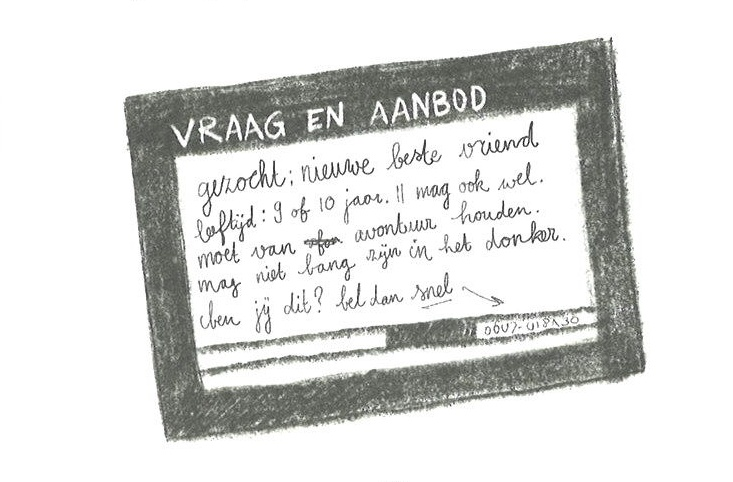 VRAAG EN AANBOD
gezocht: nieuwe beste vriend
leeftijd: 9 of 10 jaar. 11 mag ook wel.
moet van avontuur houden.
mag niet bang zijn in het donker.
ben jij dit? bel dan snel